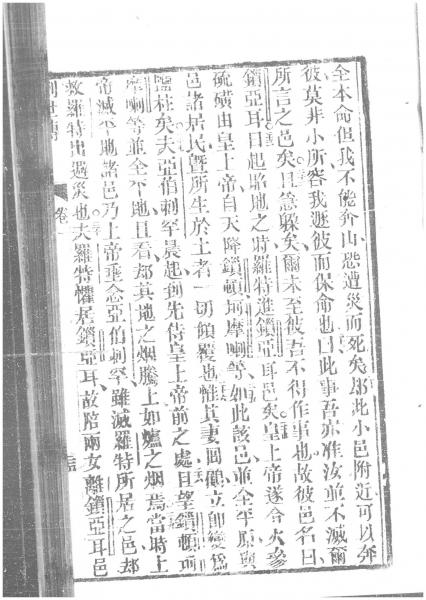 全本命但我不能奔山恐遭災而死矣耶此小邑附近可以奔
彼莫非小所容我遯彼而保命也曰此事吾亦准汝並不滅爾
所言之邑矣且急躲矣爾未至彼吾不得作事也故彼邑名曰
鎖亞耳日起照地之時羅特進鎖亞耳邑矣皇上帝遂令火
硫磺由皇上帝自天降鎖頓坷摩喇等如此該邑並全平原與
邑諸居民曁所生於土者一切傾覆也惟其妻囘顧立卽變爲
鹽柱矣夫亞伯剌罕晨起到先侍皇上帝前之處且望鎖頓坷
摩喇等並全平地且看却其地之烟騰上如爐之烟焉當時上
帝滅平地諸邑乃上帝垂念亞伯剌罕雖滅羅特所居之邑却
救羅特出遇災也夫羅特懼居鎖亞耳故陪兩女離鎖亞耳邑
創世傳 卷一